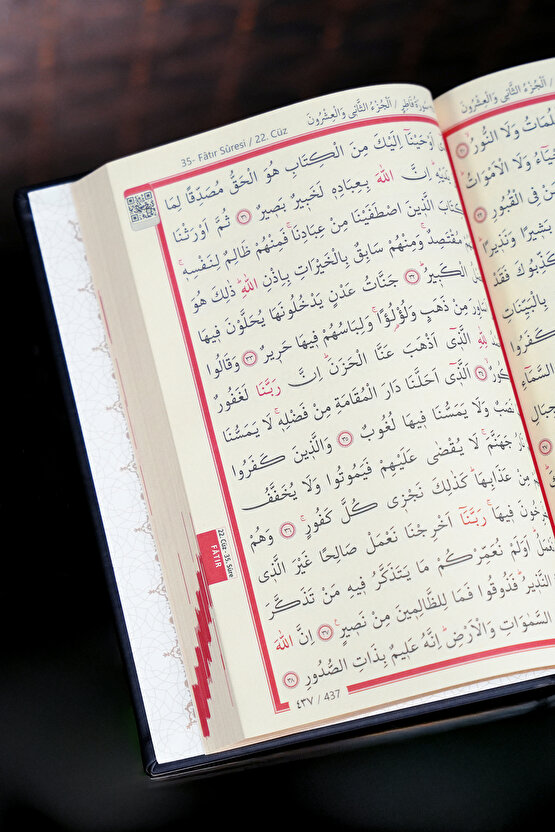 35- Fâtır Sûresi / 22. Cüz
سورة فاطر / اَلْجُزْءُ الثَّانِى وَالْعِشْرُونَ
اَوْحَيْنَٓا اِلَيْكَ مِنَ الْكِتَابِ هُوَ الْحَقُّ مُصَدِّقًا لِمَا
اِنَّ اللّٰهَ بِعِبَادِهٖ لَخَبٖيرٌ بَصٖيرٌ ٣١ ثُمَّ اَوْرَثْنَا
الَّذٖينَ اصْطَفَيْنَا مِنْ عِبَادِنَاۚ فَمِنْهُمْ ظَالِمٌ لِنَفْسِهٖۚ
مُقْتَصِدٌۚ وَمِنْهُمْ سَابِقٌ بِالْخَيْرَاتِ بِاِذْنِ اللّٰهِؕ ذٰلِكَ هُوَ
الْكَبٖيرُؕ ٣٢ جَنَّاتُ عَدْنٍ يَدْخُلُونَهَا يُحَلَّوْنَ فٖيهَا
مِنْ ذَهَبٍ وَلُؤْلُؤًاۚ وَلِبَاسُهُمْ فٖيهَا حَرٖيرٌ ٣٣ وَقَالُوا
لِلّٰهِ الَّذٖٓى اَذْهَبَ عَنَّا الْحَزَنَؕ اِنَّ رَبَّنَا لَغَفُورٌ
٣٤ اَلَّذٖٓى اَحَلَّنَا دَارَ الْمُقَامَةِ مِنْ فَضْلِهٖۚ لَا يَمَسُّنَا
نَصَبٌ وَلَا يَمَسُّنَا فٖيهَا لُغُوبٌ ٣٥ وَالَّذٖينَ كَفَرُوا
جَهَنَّمَۚ لَا يُقْضٰى عَلَيْهِمْ فَيَمُوتُوا وَلَا يُخَفَّفُ
مِنْ عَذَابِهَاؕ كَذٰلِكَ نَجْزٖى كُلَّ كَفُورٍۚ ٣٦ وَهُمْ
فٖيهَاۚ رَبَّنَٓا اَخْرِجْنَا نَعْمَلْ صَالِحًا غَيْرَ الَّذٖى
اَوَلَمْ نُعَمِّرْكُمْ مَا يَتَذَكَّرُ فٖيهِ مَنْ تَذَكَّرَ
النَّذٖيرُؕ فَذُوقُوا فَمَا لِلظَّالِمٖينَ مِنْ نَصٖيرٍ ٣٧ اِنَّ اللّٰهَ
السَّمٰوَاتِ وَالْاَرْضِؕ اِنَّهُ عَلٖيمٌ بِذَاتِ الصُّدُورِ ٣٨
٤٣٧ / 437
22. Cüz - 35. Sûre
FÂTIR
اَلْجُزْءُ الثَّانِى وَالْعِشْرُونَ
وَلَا النُّورُ
وَلَا الْاَمْوَاتُ
فِى الْقُبُورِ
بَشٖيرًا وَنَذٖيرًا
فَقَدْ
بِالْبَيِّنَاتِ
كَفَرُوا
السَّمَٓاءِ